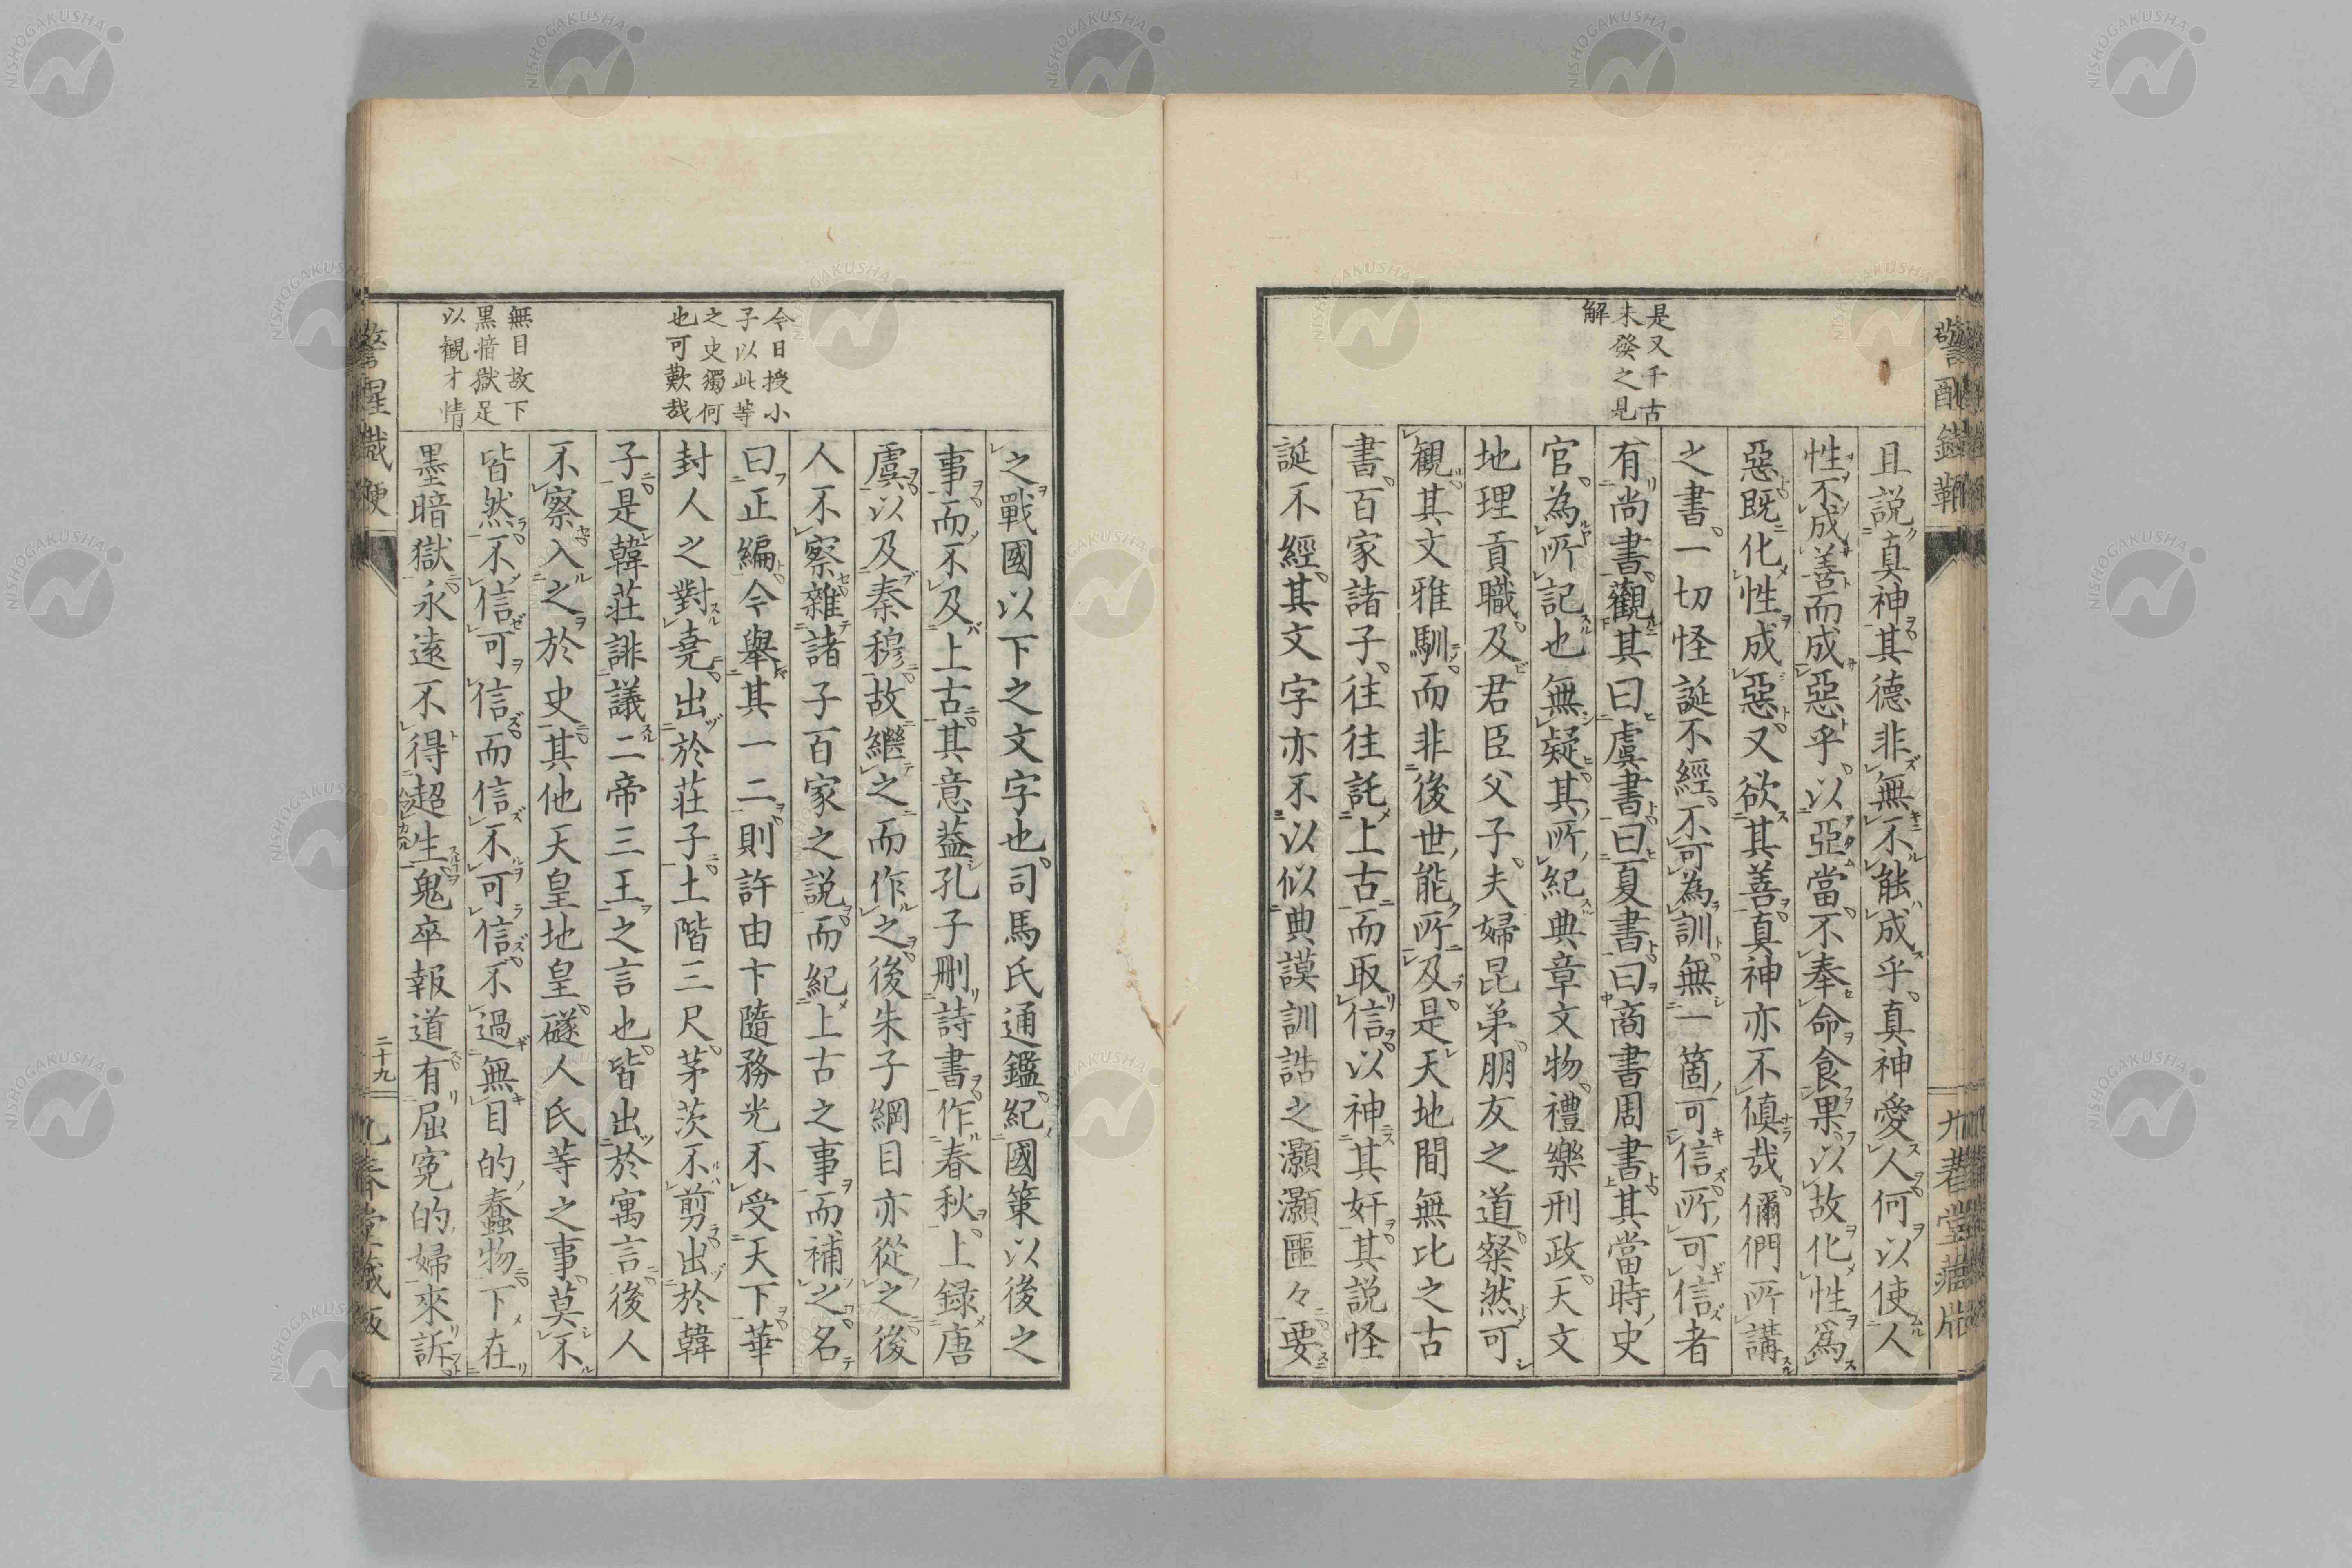 是又千古
未發之見
解
且説真神其德非無不能成乎真神愛人何以使人
性不成善而成惡乎以亞當不奉命食果以故化性爲
惡既化性成惡又欲其善真神亦不傎哉儞們所講
之書一切怪誕不經不可為訓無一箇可信所可信者
有尚書觀其曰虞書曰夏書曰商書周書其當時史
官為所記也無疑其所紀典章文物禮樂刑政天文
地理貢職及君臣父子夫婦昆弟朋友之道粲然可
觀其文雅馴而非後世能所及是天地間無比之古
書百家諸子往往託上古而取信以神其奸其説怪
誕不經其文字亦不以似典謨訓誥之灝灝噩々要
今日授小
子以此等
之史獨何
也可歎哉
無目故下
黒暗獄足
以観才情
之戰國以下之文字也司馬氏通鑑紀國策以後之
事而不及上古其意葢孔子刪詩書作春秋上録唐
虞以及秦穆故繼之而作之後朱子綱目亦從之後
人不察雜諸子百家之説而紀上古之事而補之名
曰正編今舉其一二則許由卞隨務光不受天下華
封人之對堯出於莊子土階三尺茅茨不剪出於韓
子是韓莊誹議二帝三王之言也皆出於寓言後人
不察入之於史其他天皇地皇燧人氏等之事莫不
皆然不信可信而信不可信不過無目的蠢物下在
墨暗獄永遠不得超生鬼卒報道有屈寃的婦來訴
二十九
九春堂藏板